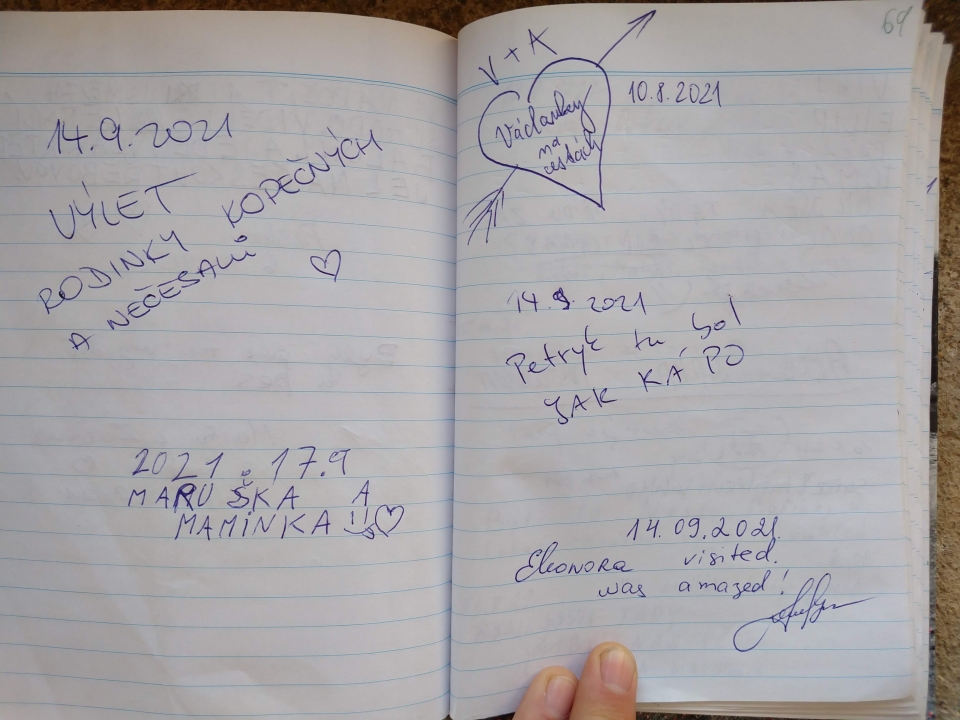 14.9.2021
VÝLET
RODINKY KOPEČNÝCH
A NEČESALŮ
2021. 17.9
MARUŠKA A
MAMINKA
69
V + A
10.8.2021
na
cestách
14.9.2021
Petryk tu bol
JAK KÁPO
14.09.2021.
Eleonora visited.
was amazed!